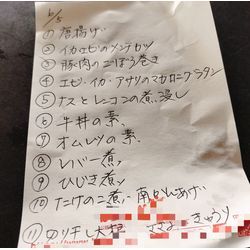 6/5
① 唐揚げ
② イカエビのソンナカツ
③ 豚肉のごぼう巻き
④ エビ・イカ・アサリのマカロニグラタン
⑤ ナスとレンコンの煮浸し
⑥ 牛丼の素、
⑦ オムレツの素、
⑧ レバー煮、
⑨ ひじき煮、
⑩ たけのこ煮、南からあげ
⑪ 切り干し大根 ささみ きゅうり